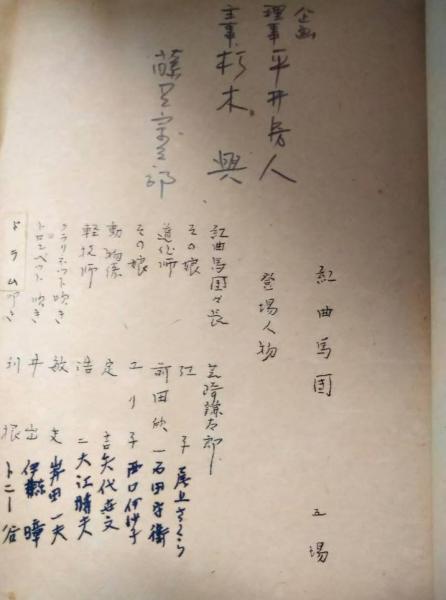 企画
理事 平井房人
主事 朽木 興
藤
紅曲馬団 五場
登場人物
紅曲馬団々長
その娘 紅子 尾上さくら
道化師 前田欣一 石田守衛
その娘 ユリ子 西口
動物係 定吉 矢代世文
軽技師 浩二 大江時夫
クラリネット吹き 敏夫 岸田一夫
トロンペット吹き 井出 伊藤 暲
ドラム叩き 利根 トニー谷